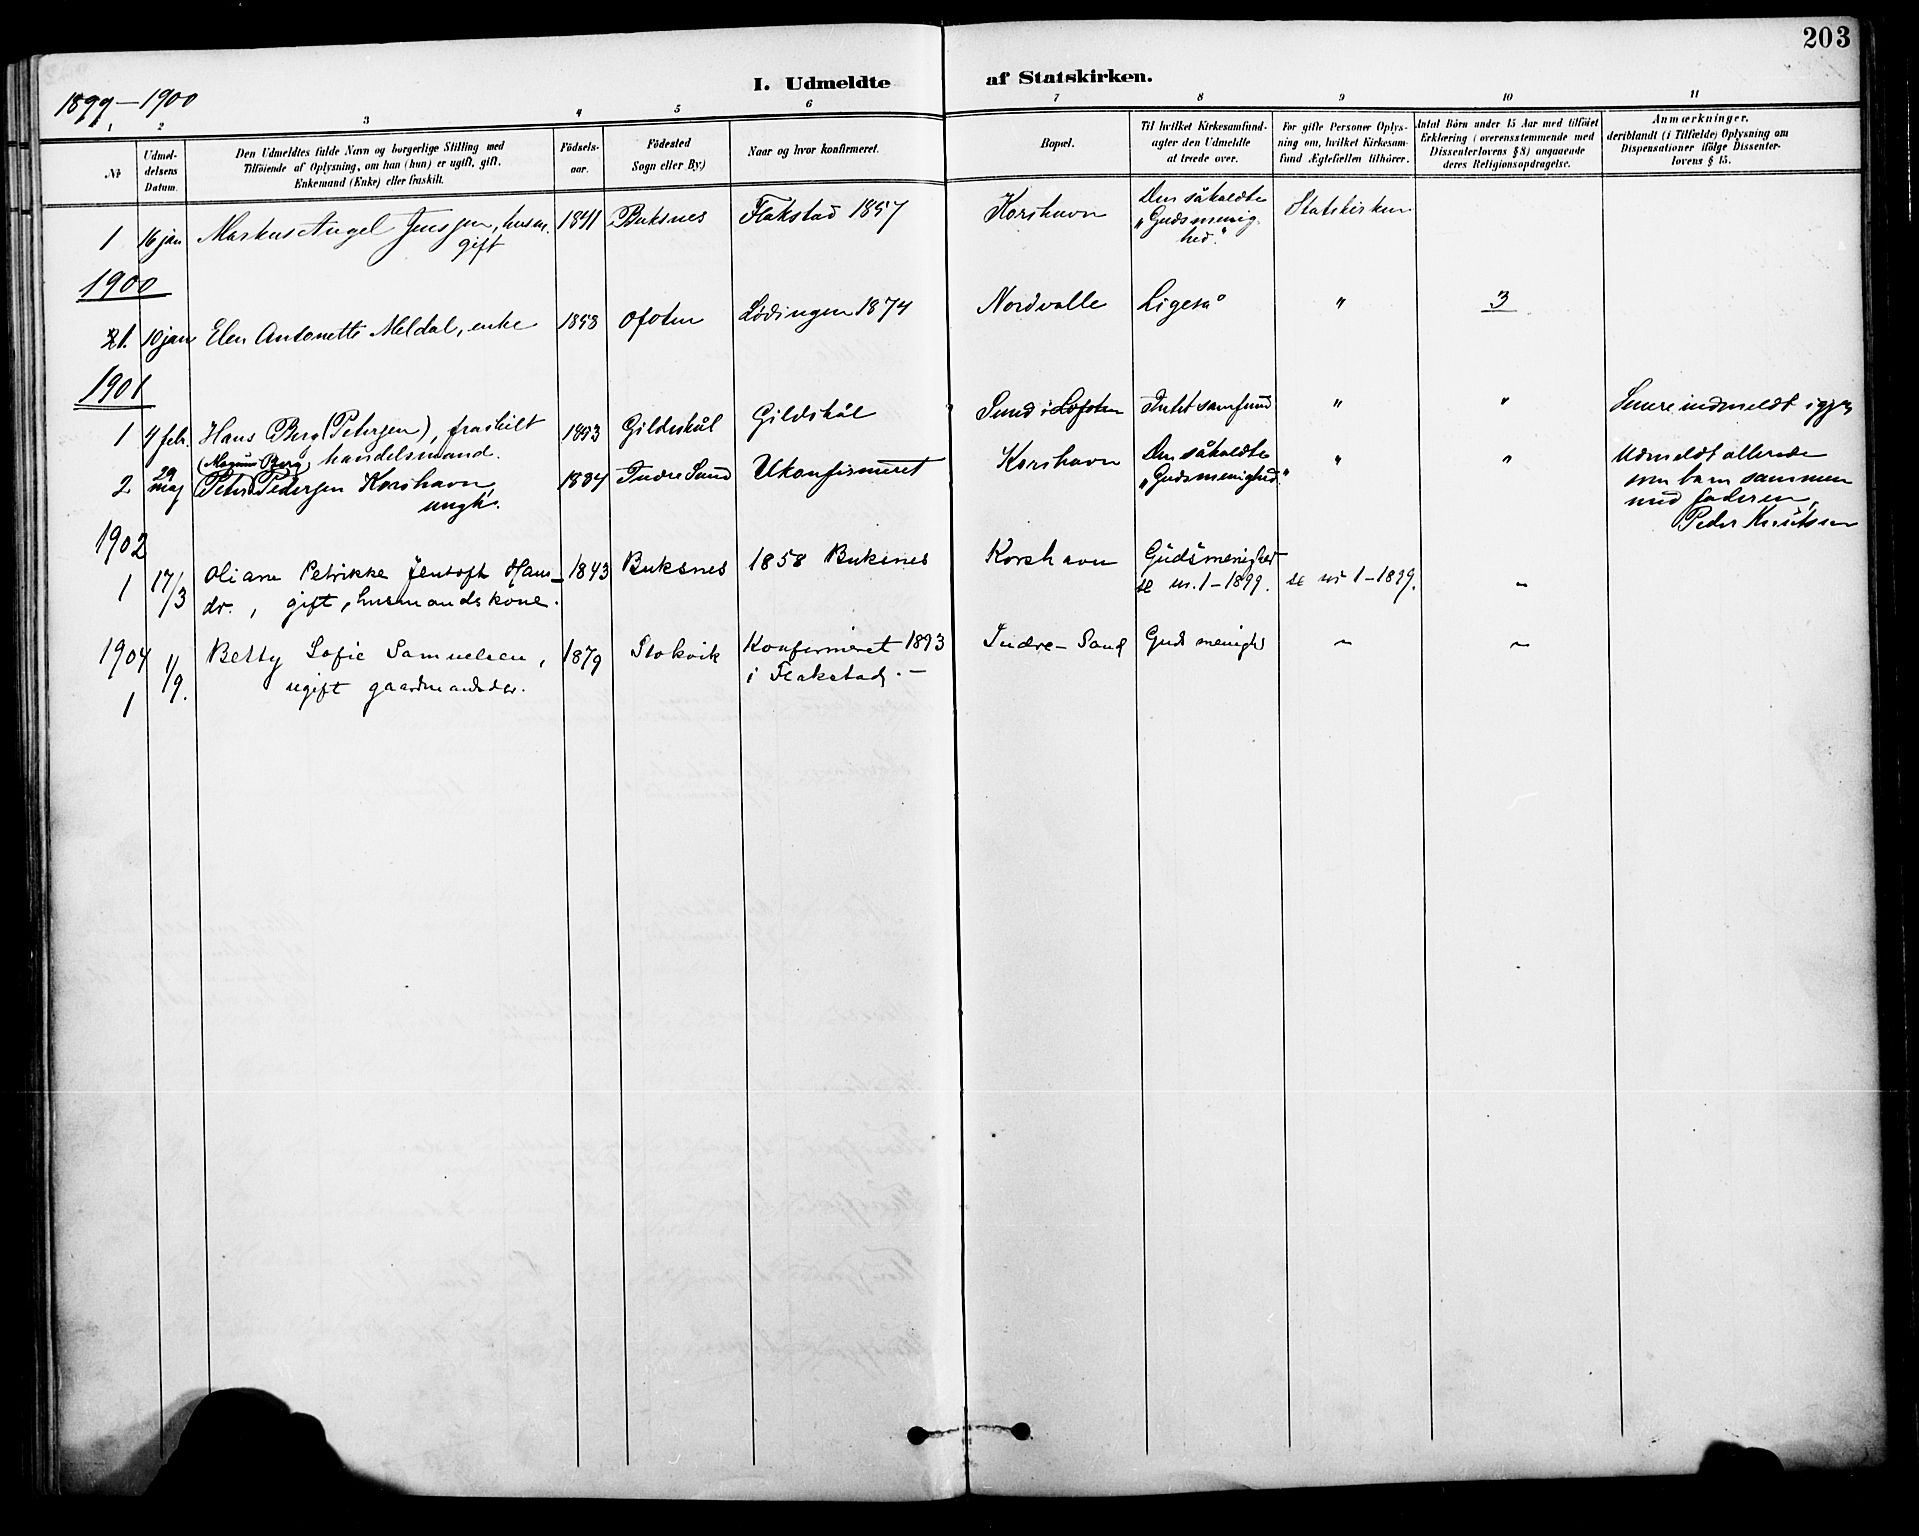 203
I. Udmeldte af Statskirken.
1899-1900
1 2 3 4 5 6 7 8 9 10 11
Nr.
Udmel-
delsens
Datum.
Den Udmeldtes fulde Navn og borgerlige Stilling med
Tilföiende af Oplysning, om han (hun) er ugift, gift,
Enkemand (Enke) eller fraskilt.
Födsels-
aar.
Födested
Sogn eller By)
Naar og hvor konfirmeret.
Bopæl.
Til hvilket Kirkesamfund-
agter den Udmeldte
at træde over.
For gifte Personer Oplys-
ning om, hvilket Kirkesam-
fund Ægtefællen tilhörer.
Antal Börn under 15 Aar med tilföiet
Erklæring (overensstemmende med
Dissenterlovens § 8) angaaende
deres Religionsopdragelse.
Anmærkninger,
deriblandt (i Tilfælde) Oplysning om
Dispensationer ifölge Dissenter-
lovens § 15.
1 16 jan Markus Angel Jensen, husm. 1841 Buksnes Flakstad 1857 Korshavn Den såkaldte Statskirken
gift „Gudsmenig-
hed."
1900
1. 10 jan Elen Antonette Meldal, enke 1858 Ofoten Lödingen 1874 Nordvalle Ligeså " 3
1901
1 9 febr. Hans Berg (Petersen), fraskilt 1853 Gildeskål Gildskål Sund i Lofoten Intet samfund " " Senere indmeldt igjen
handelsmand.
(Magnus Berg)
2 29 maj Peter Pedersen Korshavn, 1884 Indre Sund Ukonfirmeret Korshavn Den såkaldte " " Udmeldt allerede
ungk. „Gudsmenighed" som barn sammen
med faderen,
Peder Knutsen
1902
1 17/3 Oliane Petrikke Jentoft Hans- 1843 Buksnes 1858 Buksnes Korshavn Gudsmenighed
dr., gift, husmandskone. se nr. 1-1899. se nr 1-1899. "
1904 1/9. Betty Sofie Samuelsen, 1879 Stokvik Konfirmeret 1893 Indre-Sand Guds menighed " "
1 ugift gaardmandsdr. i Flakstad. -